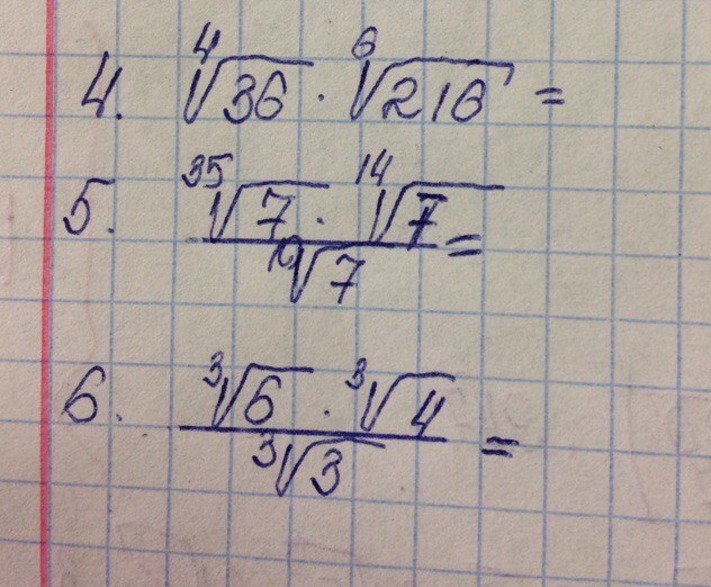 4. ⁴√36 · ⁶√216 =
5. (³⁵√7 · ¹⁴√7) / ¹⁰√7 =
6. (³√6 · ³√4) / ³√3 =